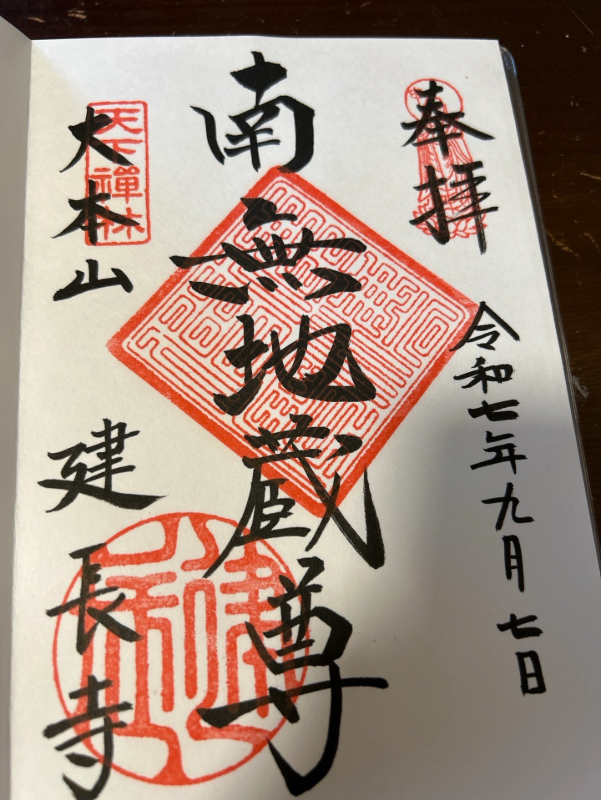 奉拝
令和七年九月七日
南無地蔵尊
天下禅林
大本山
建長寺